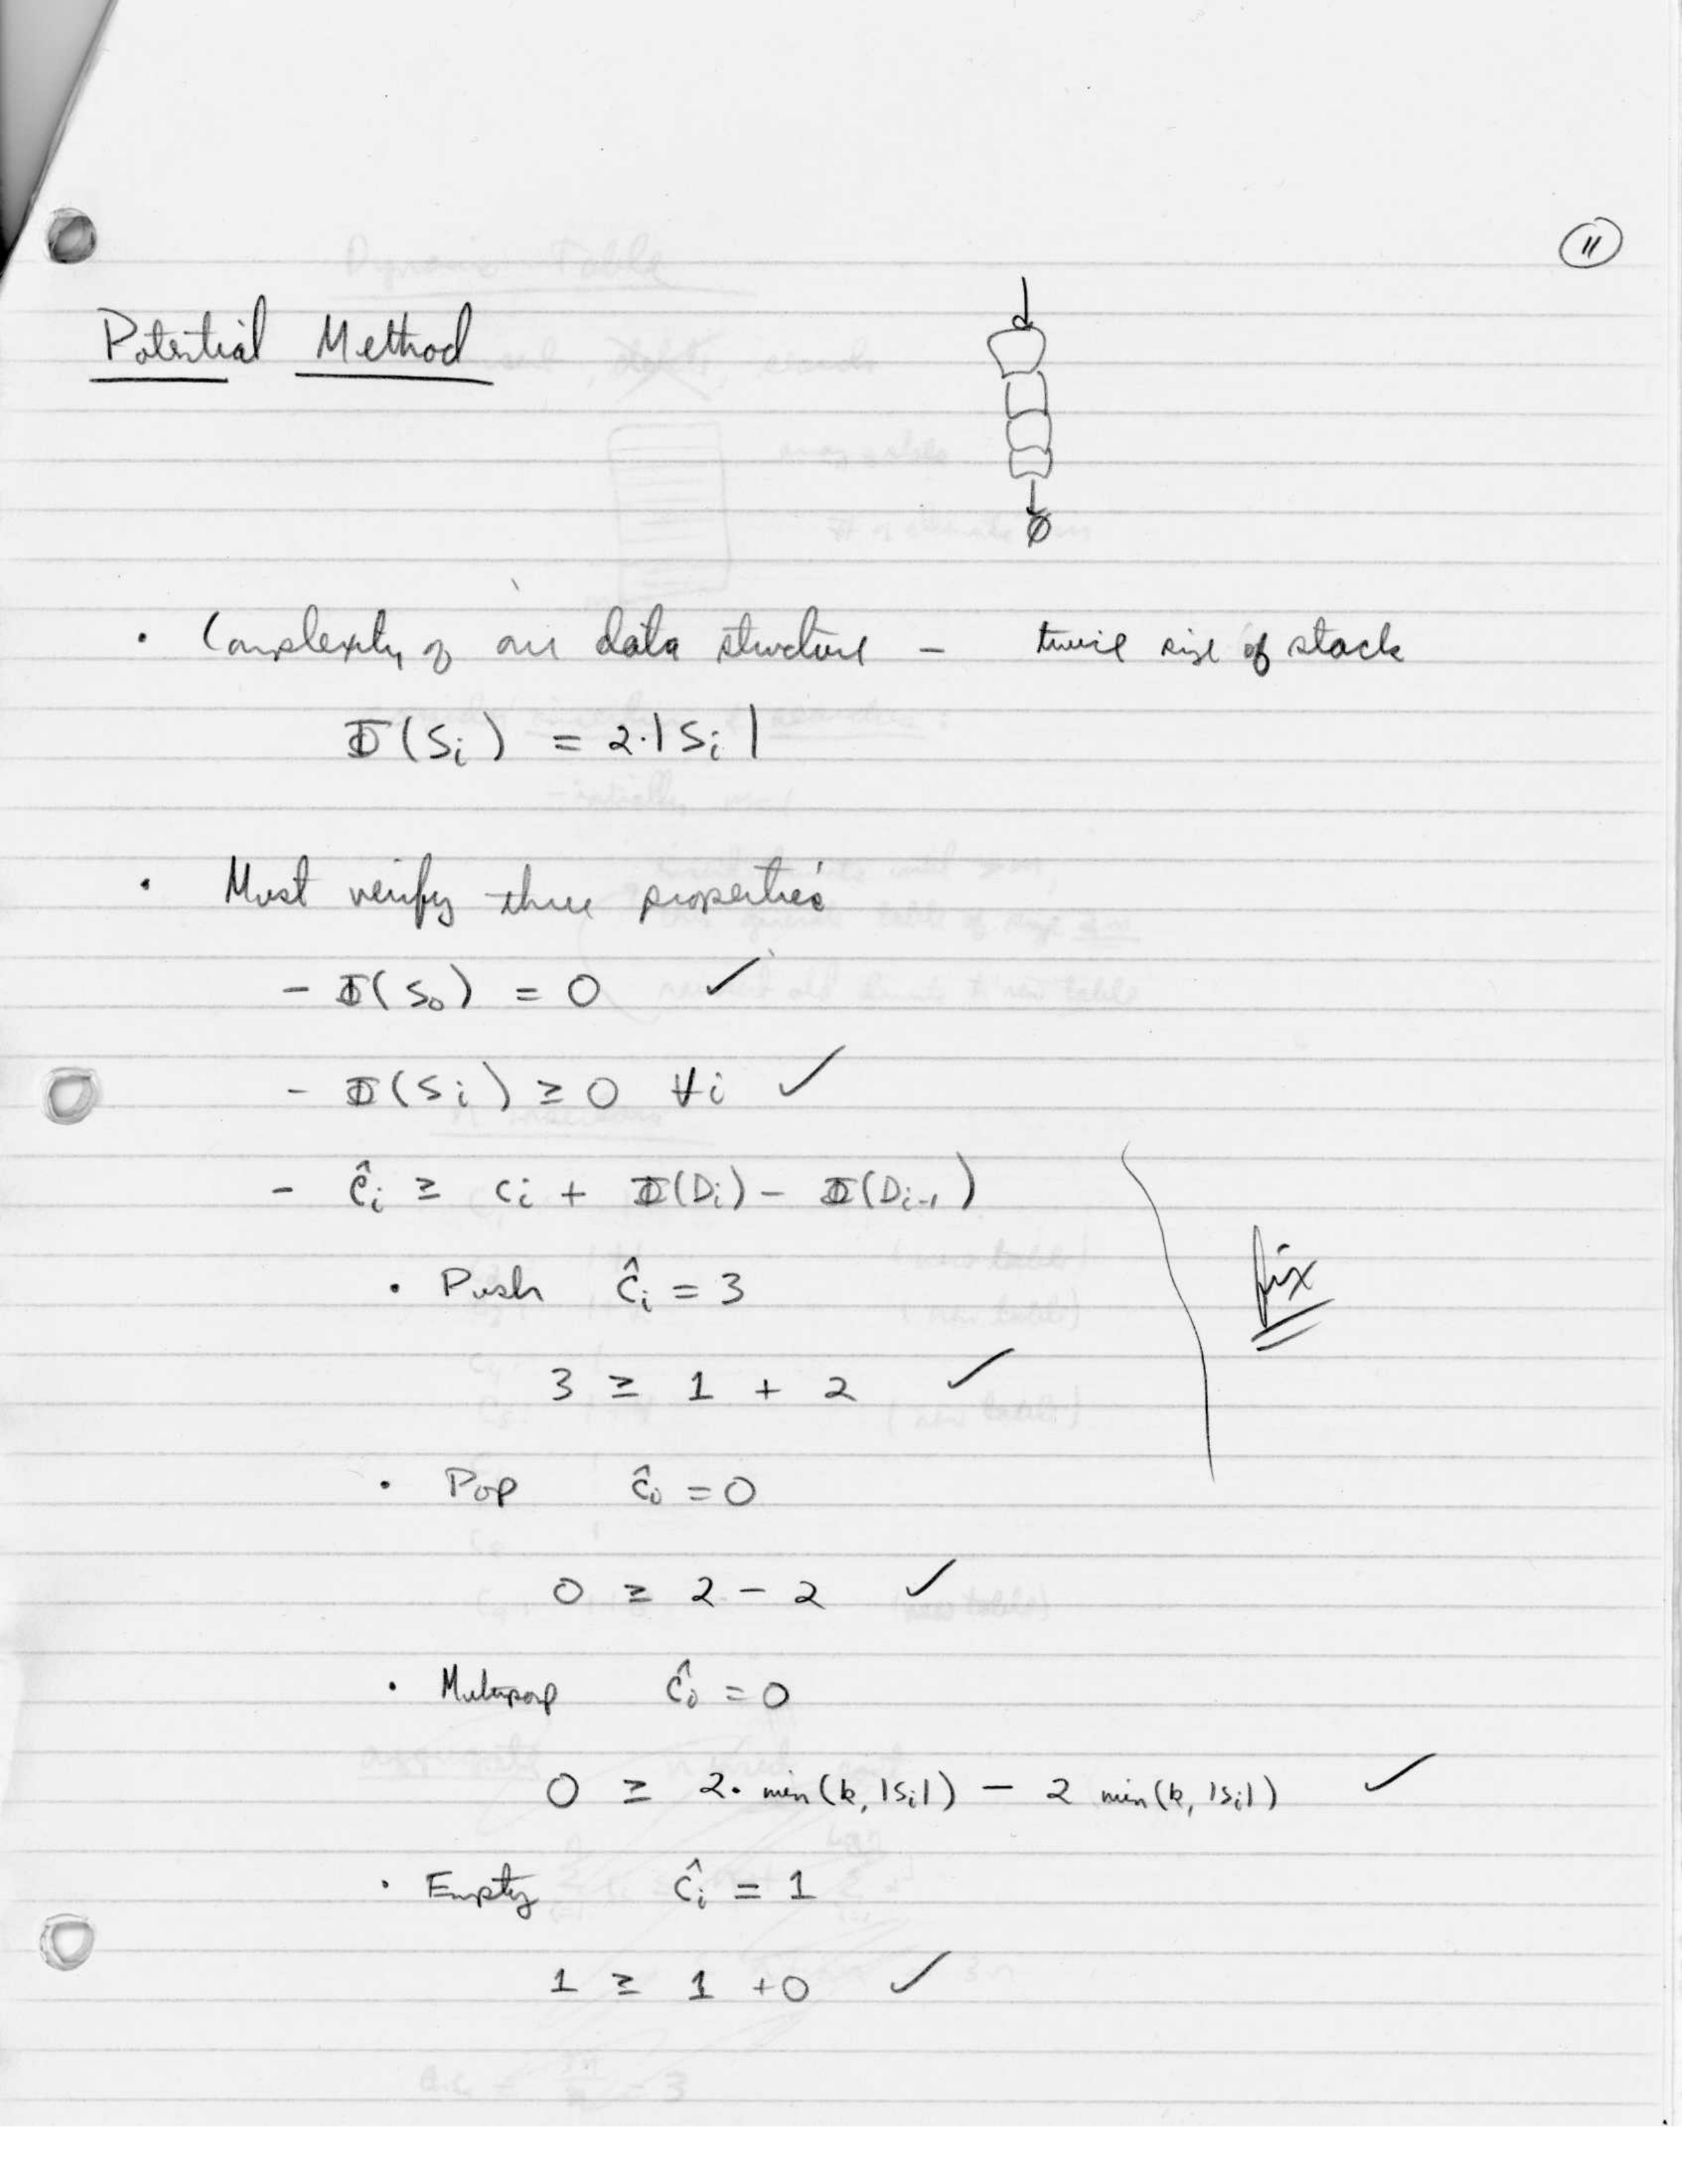 11
Potential Method
∅
• Complexity of our data structure - twice size of stack
Φ(Sᵢ) = 2·|Sᵢ|
• Must verify three properties
- Φ(S₀) = 0 ✓
- Φ(Sᵢ) ≥ 0 ∀i ✓
- ĉᵢ ≥ cᵢ + Φ(Dᵢ) - Φ(Dᵢ₋₁)
fix
• Push ĉᵢ = 3
3 ≥ 1 + 2 ✓
• Pop ĉᵢ = 0
0 ≥ 2 - 2 ✓
• Multipop ĉᵢ = 0
0 ≥ 2· min(k, |Sᵢ|) - 2 min(k, |Sᵢ|) ✓
• Empty ĉᵢ = 1
1 ≥ 1 + 0 ✓